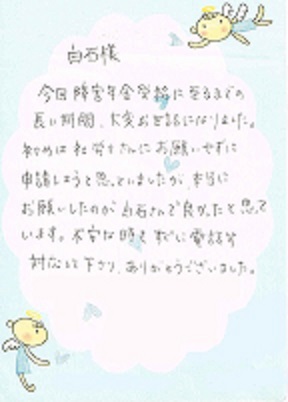 白石様
今回障害年金受給に至るまでの
長い期間、大変お世話になりました。
初めは社労士さんにお願いせずに
申請しようと思っていましたが、本当に
お願いしたのが白石さんで良かったと思って
います。不安な時も すぐに電話等
対応して下さり、ありがとうございました。